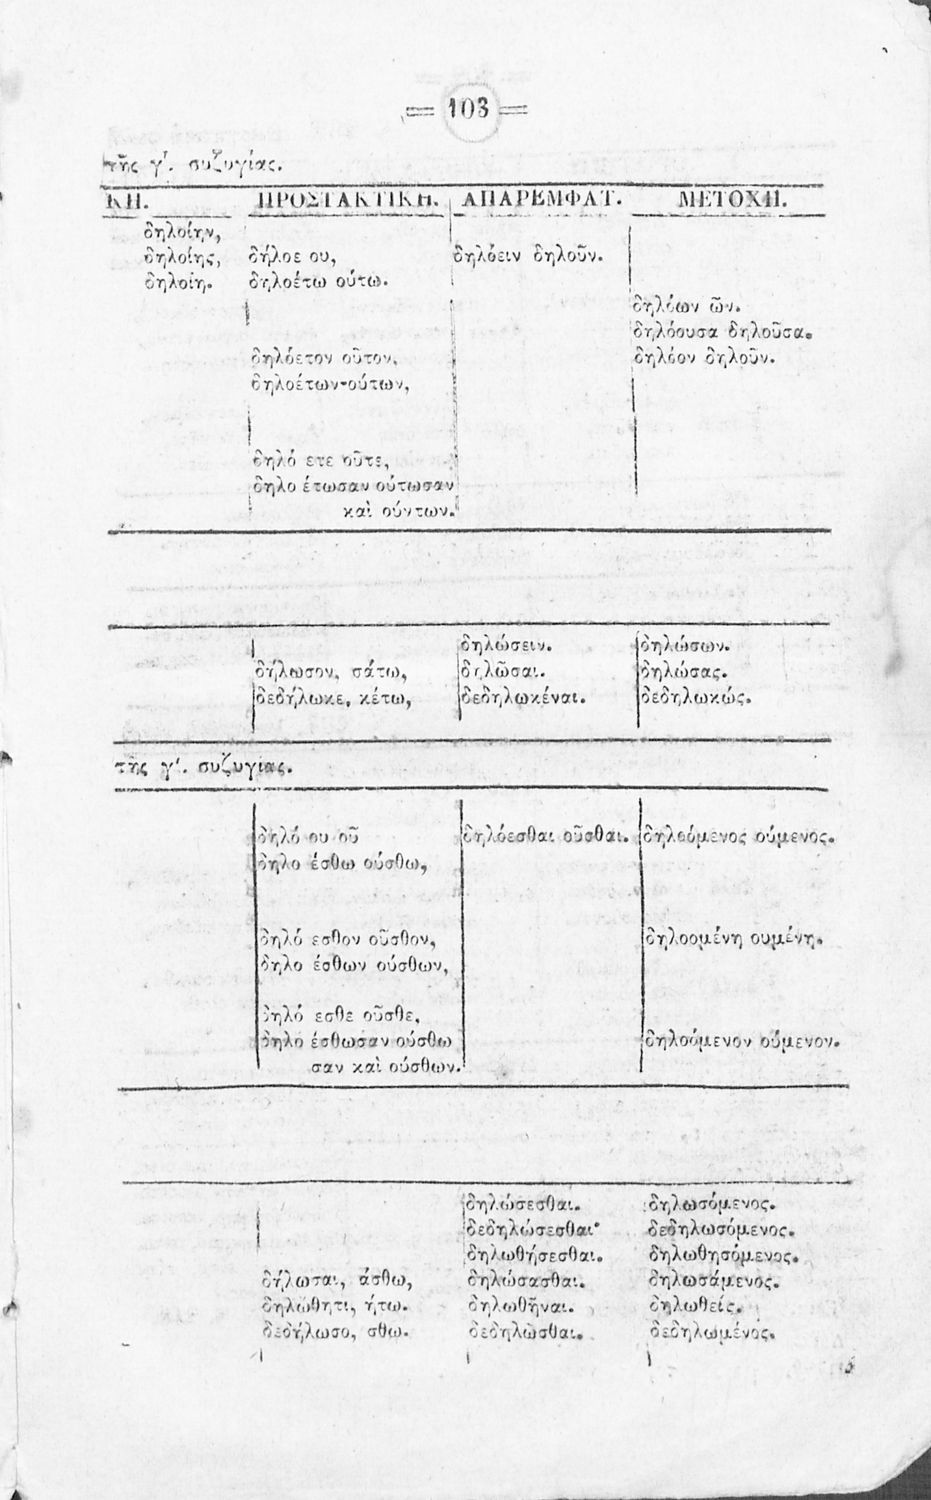 = 103 =
τῆς γ′. συζυγίας.
ΚΗ. ΠΡΟΣΤΑΚΤΙΚΗ. ΑΠΑΡΕΜΦΑΤ. ΜΕΤΟΧΗ.
δηλοίην,
δηλοίης, δήλοε ου, δηλόειν δηλοῦν.
δηλοίη. δηλοέτω ούτω.
δηλόων ῶν.
δηλόουσα δηλοῦσα.
δηλόετον οῦτον, δηλόον δηλοῦν.
δηλοέτων-ούτων,
δηλό ετε οῦτε,
δηλο έτωσαν ούτωσαν
καὶ ούντων.
δηλώσειν. δηλώσων.
δήλωσον, σάτω, δηλῶσαι. δηλώσας.
δεδήλωκε, κέτω, δεδηλωκέναι. δεδηλωκώς.
τῆς γ′. συζυγίας.
δηλό ου οῦ δηλόεσθαι οῦσθαι. δηλοόμενος ούμενος.
δηλο έσθω ούσθω,
δηλό εσθον οῦσθον, δηλοομένη ουμένη.
δηλο έσθων ούσθων,
δηλό εσθε οῦσθε,
δηλο έσθωσαν ούσθω δηλοόμενον ούμενον.
σαν καὶ ούσθων.
δηλώσεσθαι. δηλωσόμενος.
δεδηλώσεσθαι· δεδηλωσόμενος.
δηλωθήσεσθαι. δηλωθησόμενος.
δήλωσαι, άσθω, δηλώσασθαι. δηλωσάμενος.
δηλώθητι, ήτω. δηλωθῆναι. δηλωθείς.
δεδήλωσο, σθω. δεδηλῶσθαι. δεδηλωμένος.